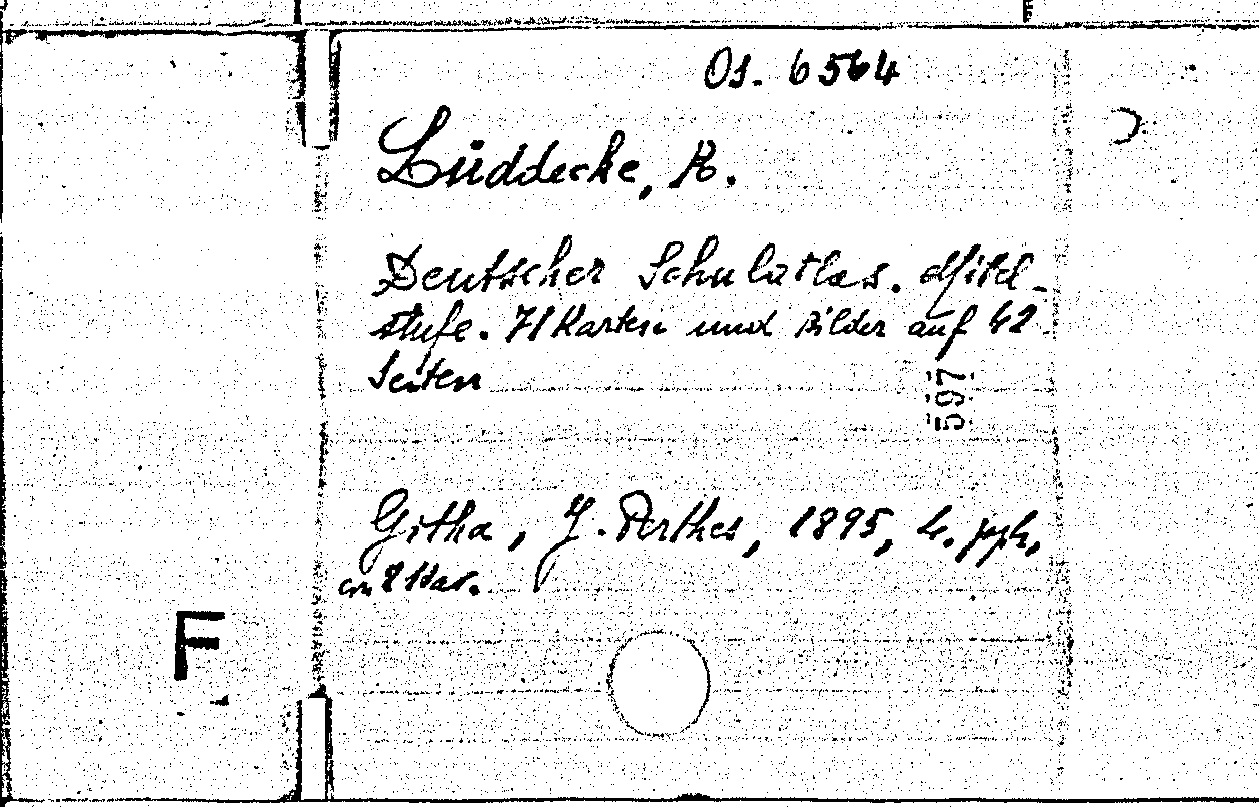 Os. 6564
Lüddecke, R.
Deutscher Schulatlas. Mittel-
stufe. 71 Karten und Bilder auf 42
Seiten
597
Gotha, J. Perthes, 1895,
F